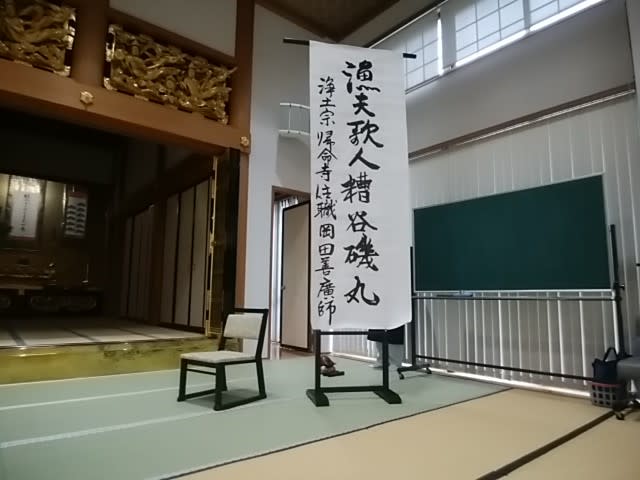 漁夫歌人糟谷磯丸
浄土宗帰命寺住職岡田善廣師